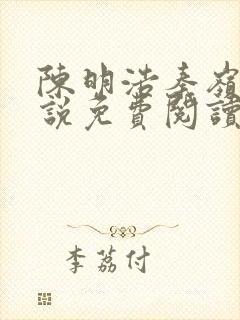 陳明浩秦嶺
說免費閱讀
李荔付